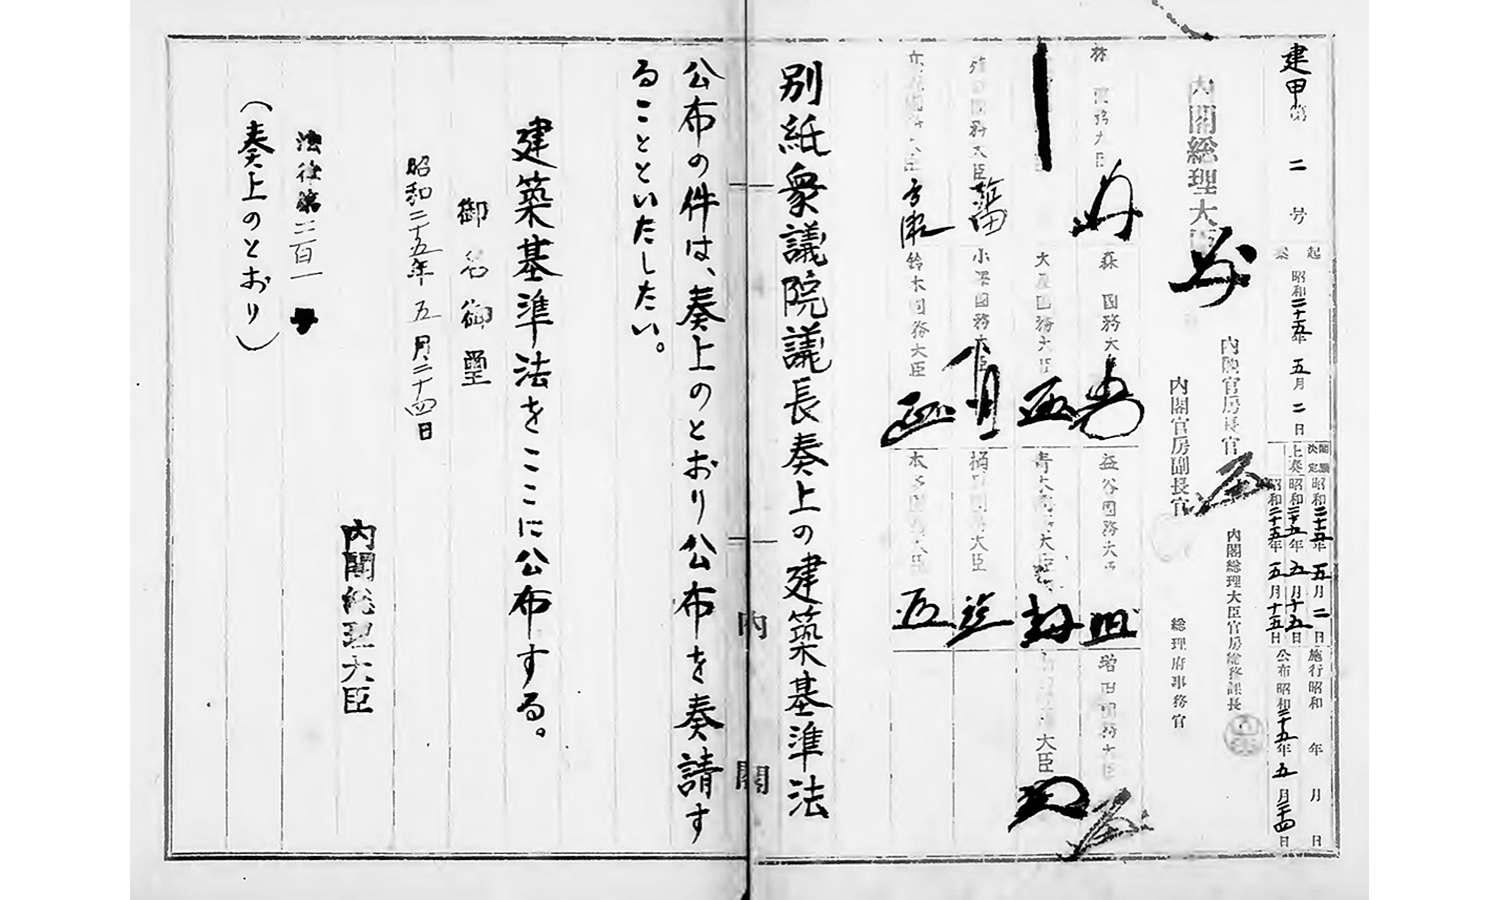 建甲第二号
起案 昭和二十五年五月二日
閣議決定 昭和二十五年五月二日
上奏 昭和二十五年五月十五日
昭和二十五年五月十五日
施行昭和 年 月 日
公布昭和二十五年五月二十四日
内閣総理大臣
内閣官房長官
内閣総理大臣官房総務課長
内閣官房副長官
総理府事務官
林国務大臣
森国務大臣
益谷国務大臣
増田国務大臣
大屋国務大臣
青木国務大臣
大臣
殖田国務大臣
小澤国務大臣
樋貝国務大臣
国務大臣
鈴木国務大臣
本多国務大臣
別紙衆議院議長奏上の建築基準法
公布の件は、奏上のとおり公布を奏請す
ることといたしたい。
建築基準法をここに公布する。
御名御璽
昭和二十五年五月二十四日
内閣総理大臣
法律第二百一号
(奏上のとおり)
内閣